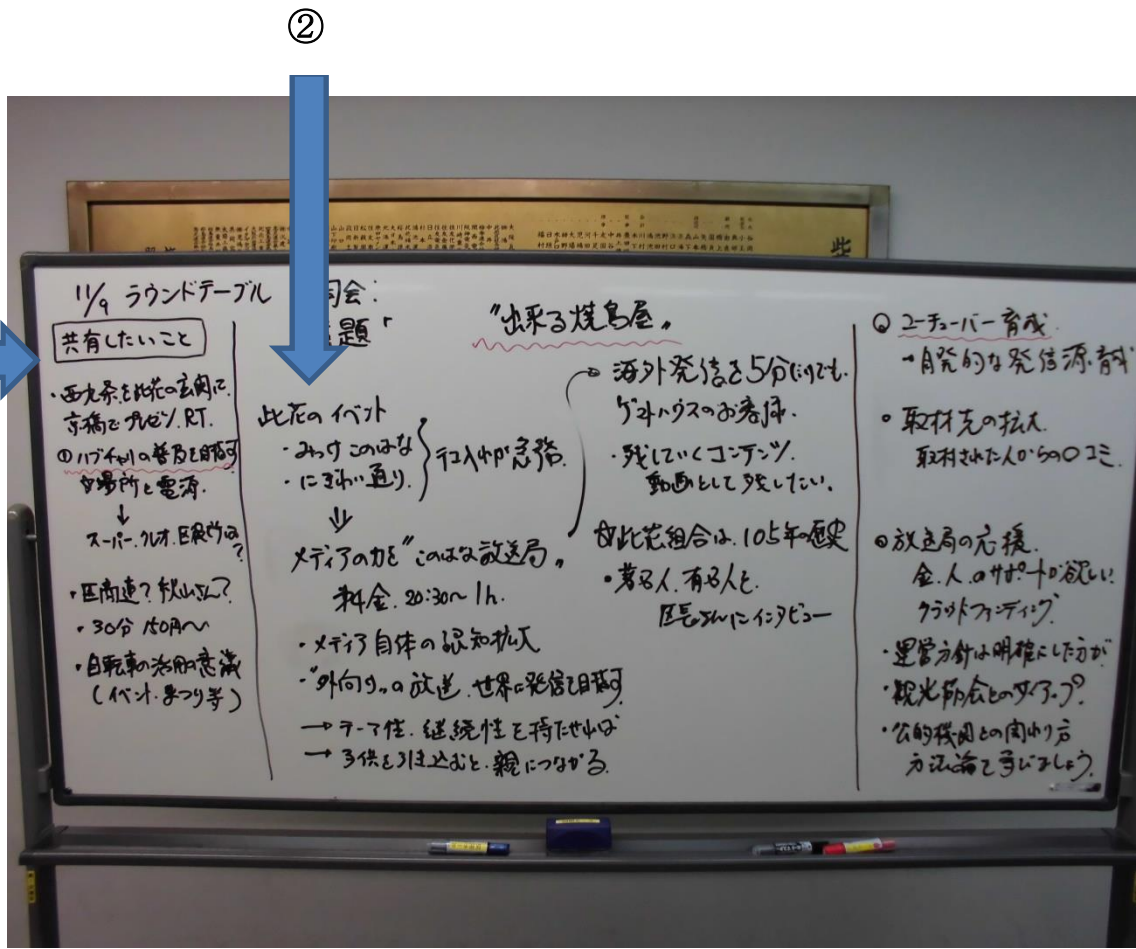 ②
11/9 ラウンドテーブル 司会:
題「
"出来る焼鳥屋"
共有したいこと
・西九条を此花の玄関に
京橋でプレゼン.RT.
① ハブチャリの普及を目指す
場所と電源.
↓
スーパー.クレオ.区役所は?
・区商連? 秋山さん?
・30分 150円〜
・自転車の活用の意識
(イベント.まつり等)
此花のイベント
・みつけ このはな
・にぎわい通り.
テコ入れが急務.
⇓
メディアの力を "このはな放送局"
料金. 20:30〜 1h.
・メディア自体の認知拡大
・"外向り"の放送. 世界に発信を目指す
→ テーマ性. 継続性を持たせれば
→ 子供を引き込むと.親につながる.
海外発信を5分だけでも.
ゲストハウスのお客様.
・残していくコンテンツ.
動画として残したい.
此花組合は.105年の歴史
・著名人.有名人と.
区長さんにインタビュー
ユーチューバー育成.
→自発的な発信源.育成
取材先の拡大.
取材された人からの口コミ.
放送局の応援.
金.人.のサポートが欲しい.
クラウドファンディング.
・運営方針は明確にした方が
・観光協会とのタイアップ?
・公的機関との関わり方
方法論を学びましょう.
柴